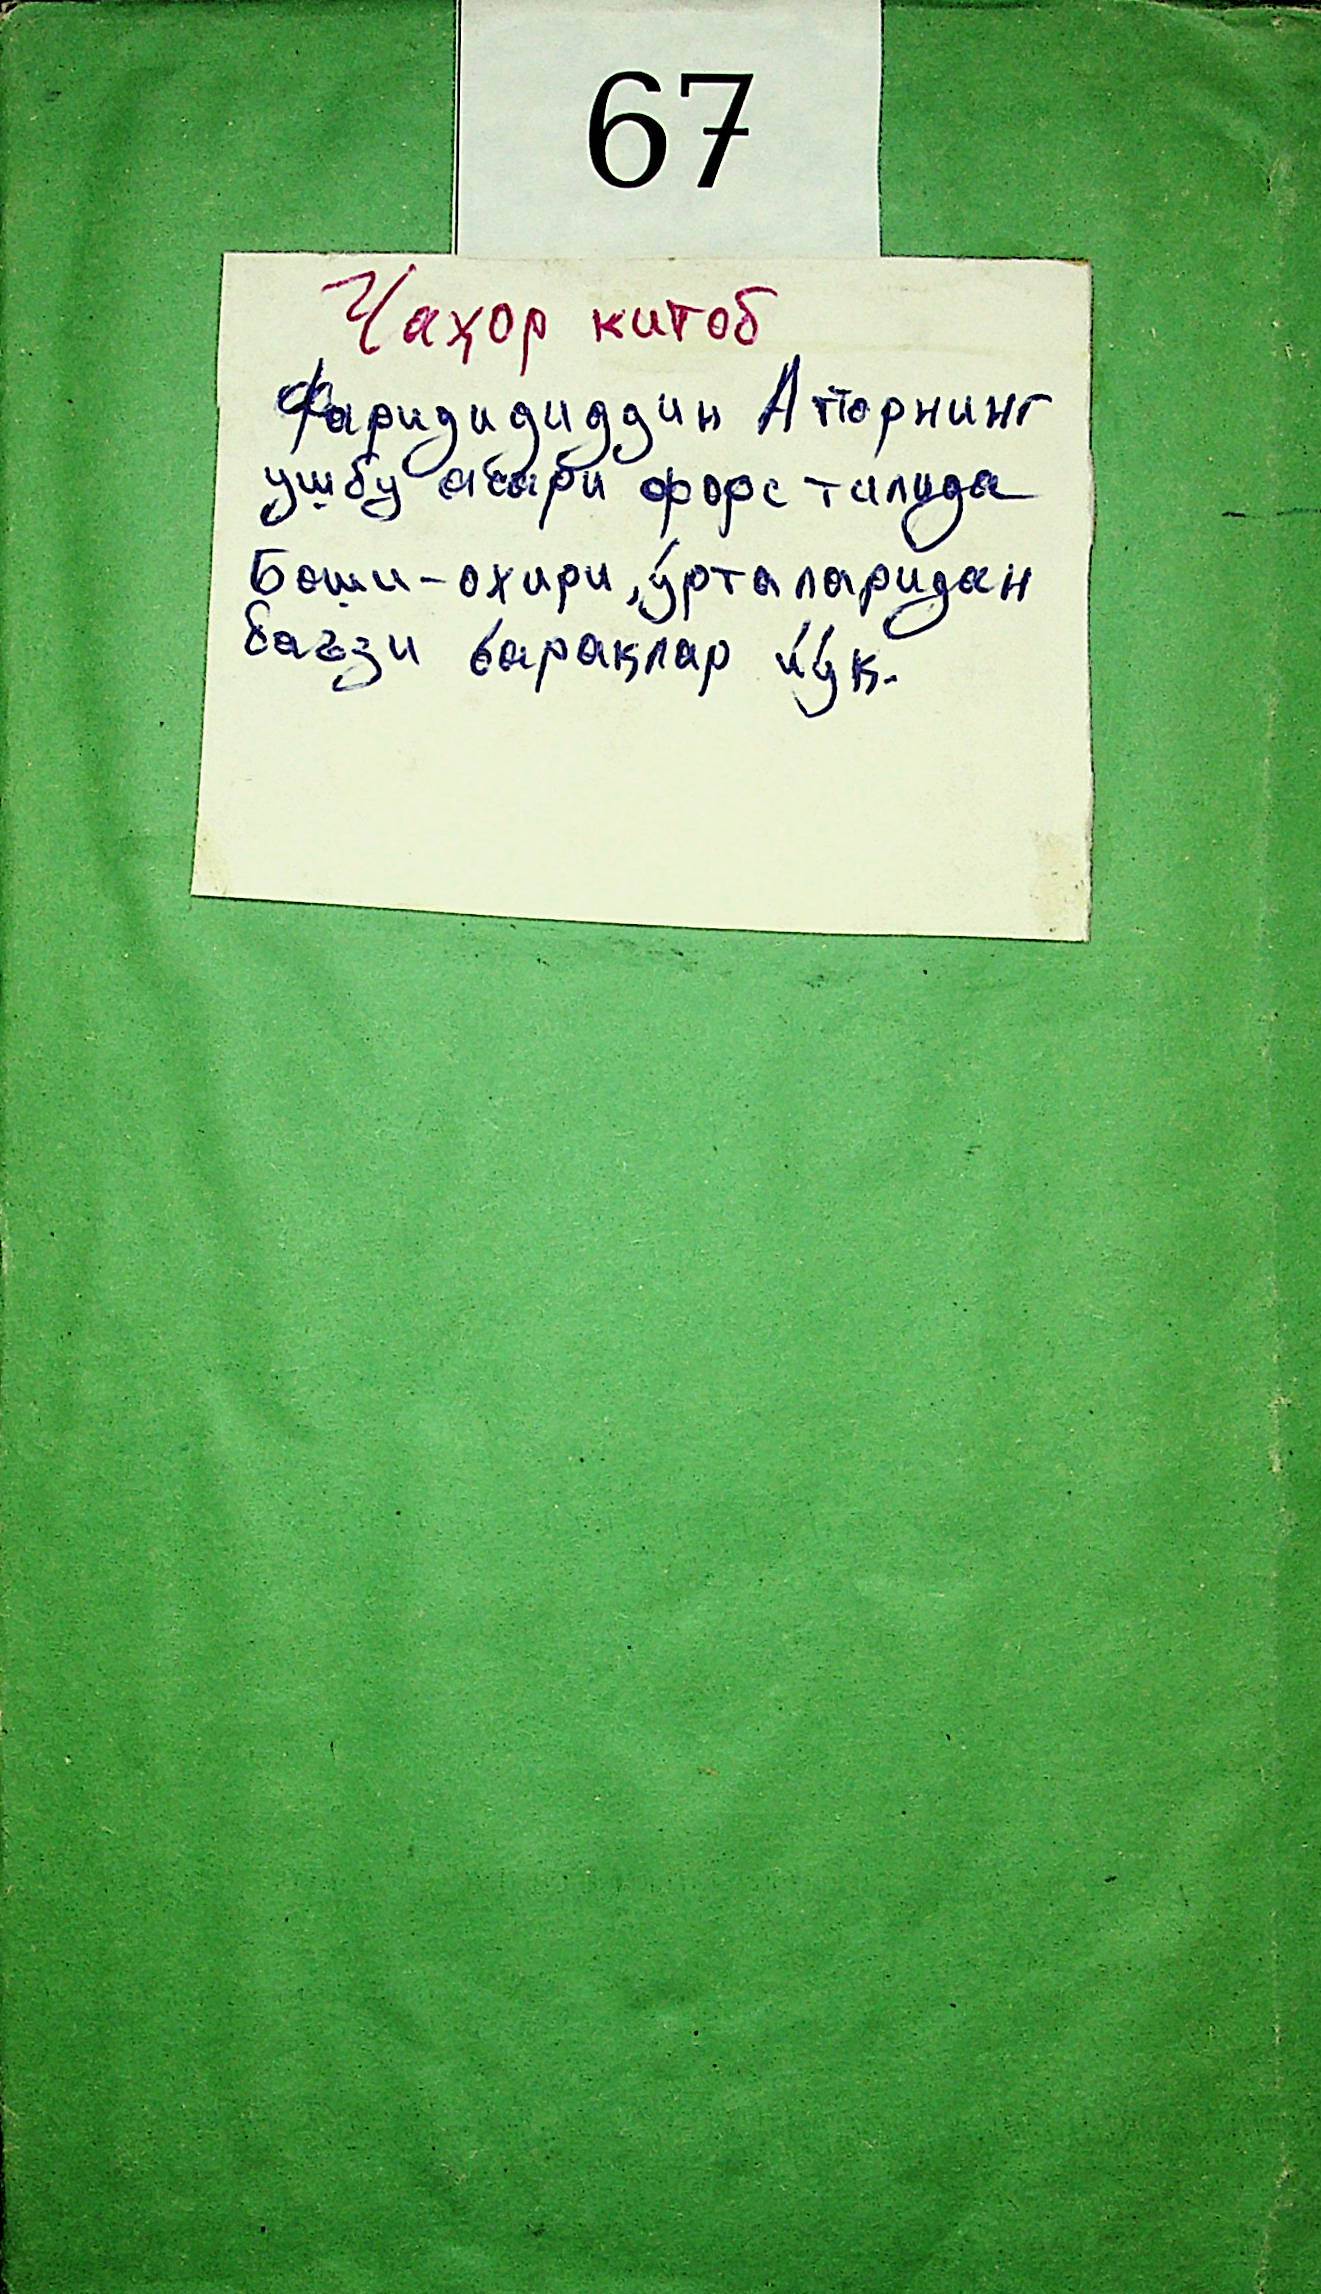 67
Чаҳор китоб
Фаридидиддин Атторнинг
ушбу асари форс тилида
Боши-охири, ўрталаридан
баъзи варақлар йўқ.